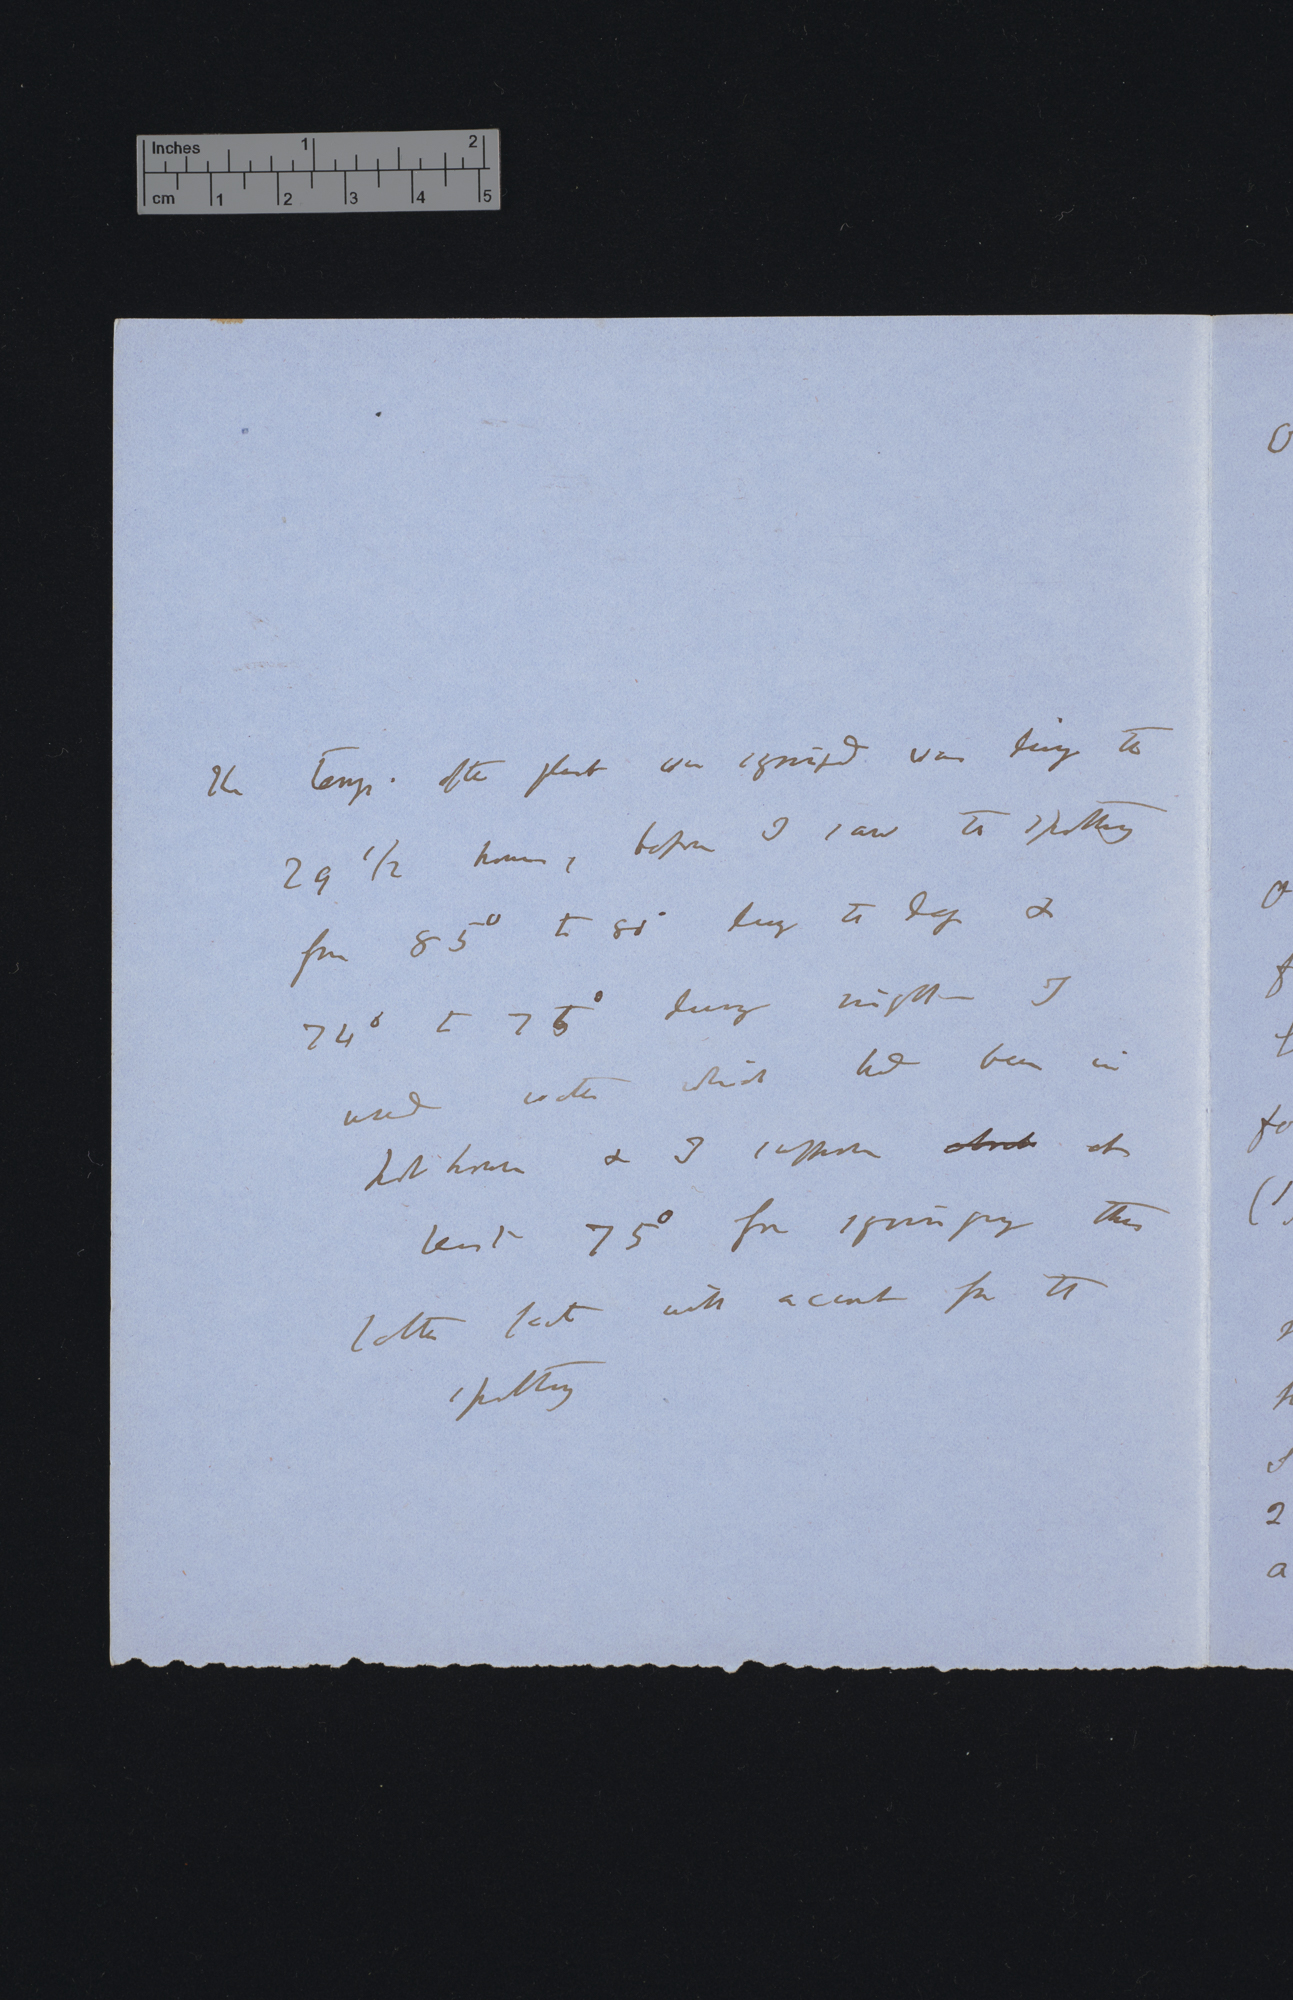 Inches 1 2
cm 1 2 3 4 5
The Temp. after plant was syringed was during the
29 1/2 hours, before I saw the spotting
from 85° to 80° during the day &
74° to 75° during night — I
used water which had been in
hot-house & I suppose about at
least 75° for syringing this
latter fact will account for the
spotting